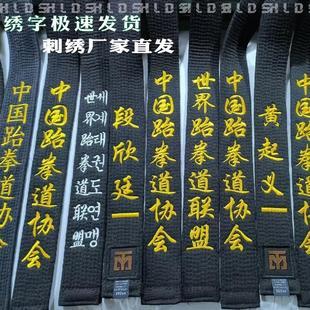 SHLD SHLD SHLD SHLD
绣字极速发货
刺绣厂家直发
中国跆拳道协会
中国跆拳道协会
世界跆拳道联盟
세계태권도연맹
段欣廷
中国跆拳道协会
世界跆拳道联盟
中国跆拳道协会
黄起义
中国跆拳道协会